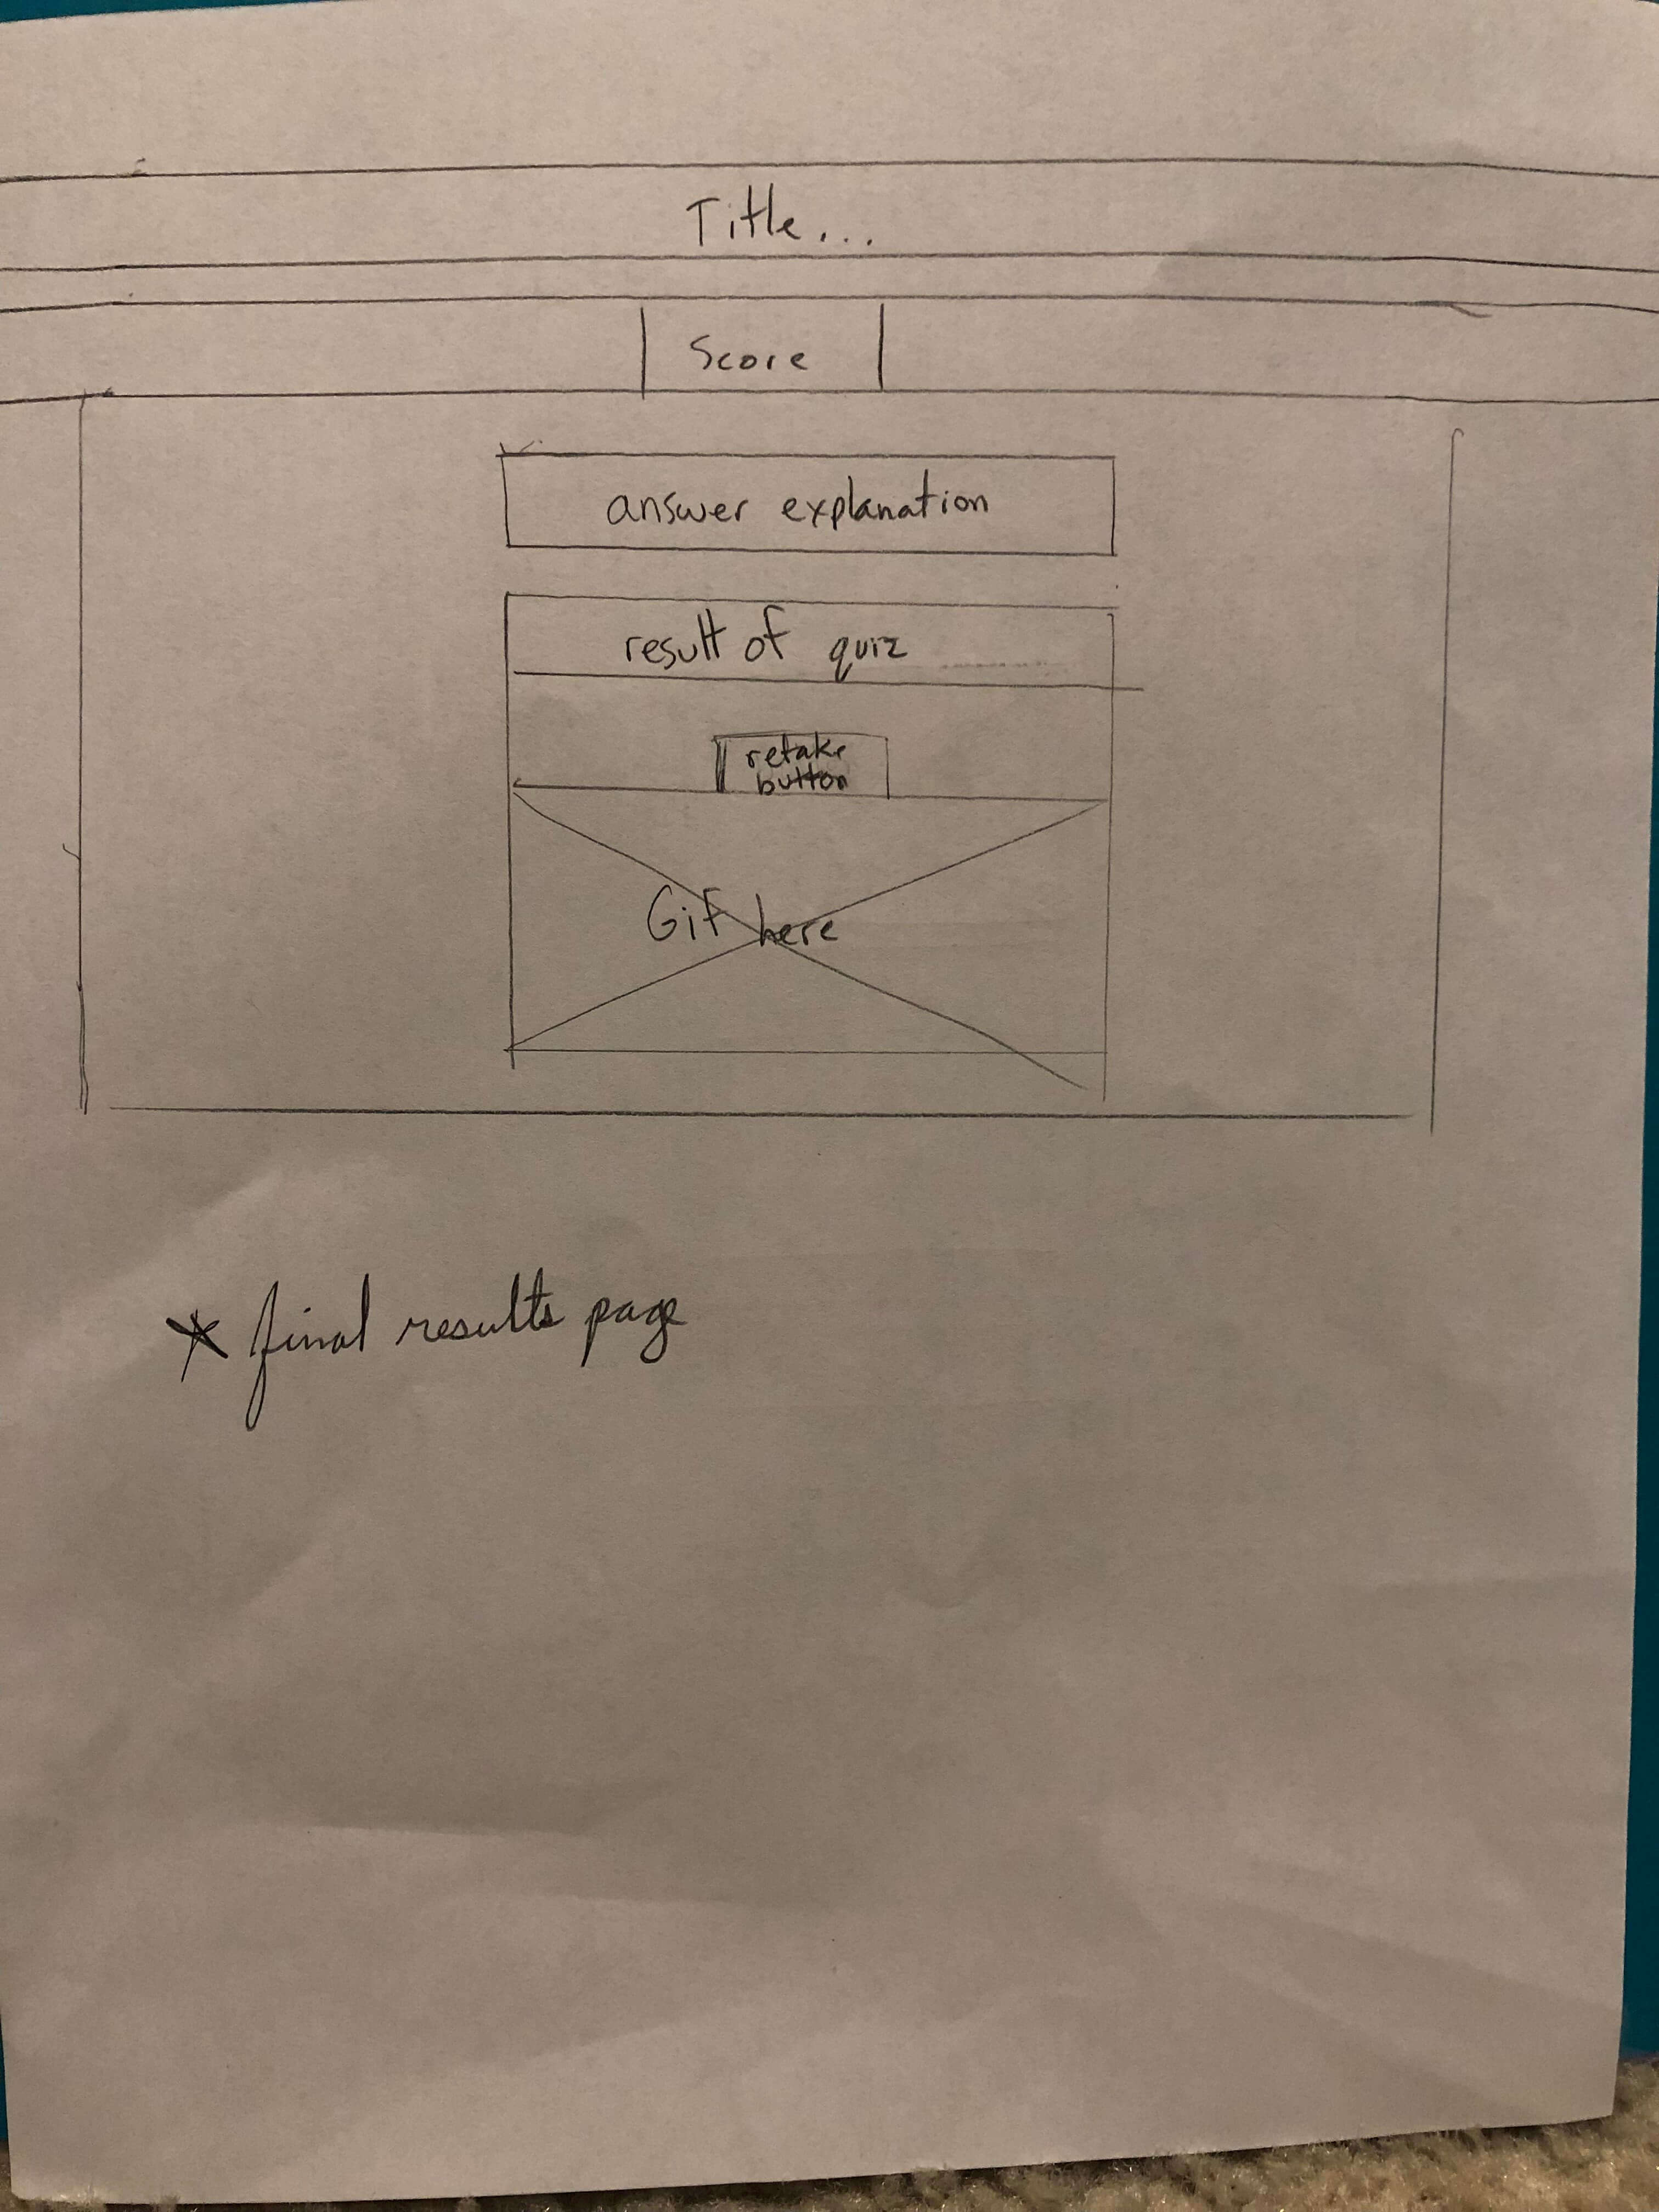 Title...
Score
answer explanation
result of quiz
retake
button
Gif here
* final results page